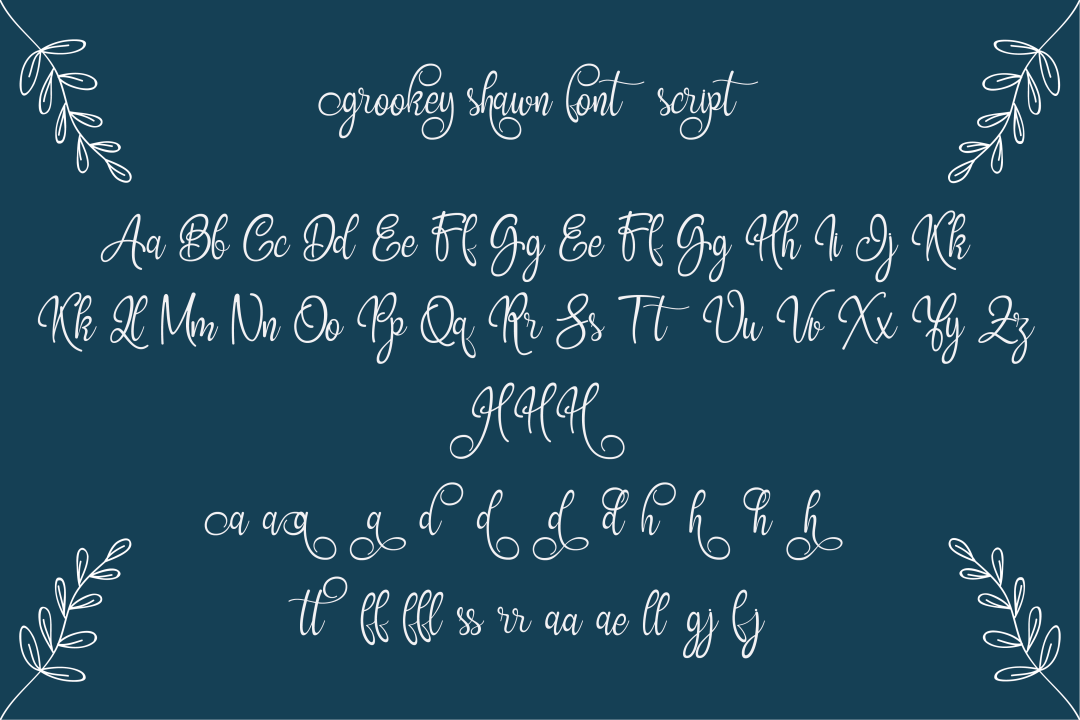 grookey shawn font script
Aa Bb Cc Dd Ee Ff Gg Ee Ff Gg Hh Ii Jj Kk
Kk Ll Mm Nn Oo Pp Qq Rr Ss Tt Uu Vv Xx Yy Zz
HHH
a aaa a d d d d h h h h
tt ff ffl ss rr aa ae ll gj fj